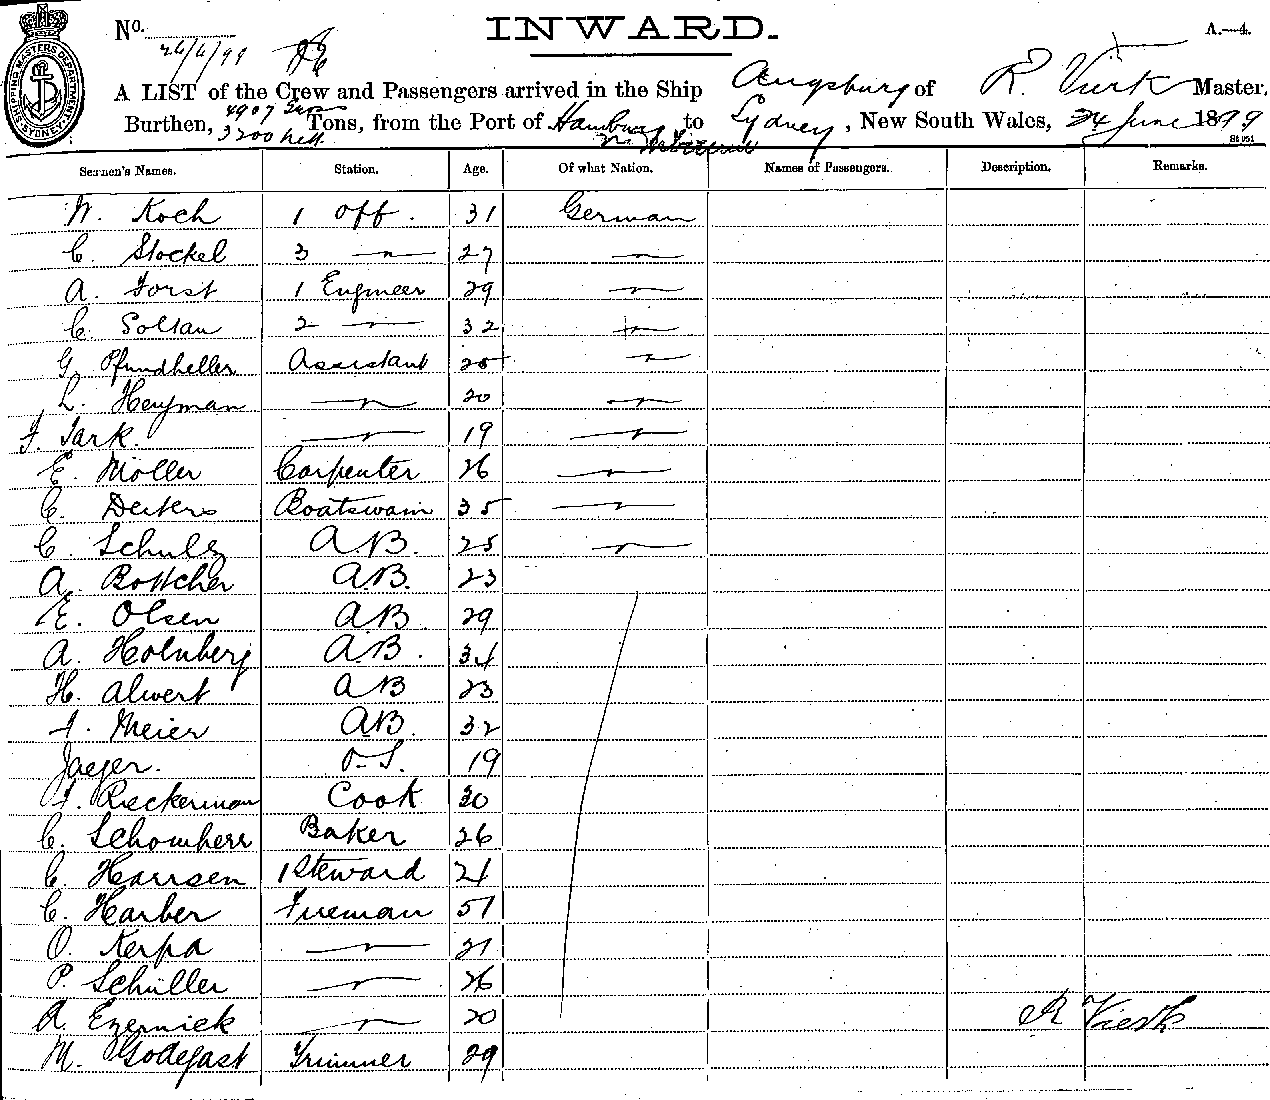 SHIPPING MASTERS DEPARTMENT SYDNEY
No. INWARD. A.—4.
26/6/99
A LIST of the Crew and Passengers arrived in the Ship Augsburg of R. Vierk Master,
Burthen, 4907 Gross 3200 nett Tons, from the Port of Hamburg to Sydney, New South Wales, 24 June 1899
Seamen's Names. Station. Age. Of what Nation. Names of Passengers. Description. Remarks.
W. Koch 1 Off. 31 German
C. Stockel 3 — 27 —
A. Forst 1 Engineer 29 —
C. Soltau 2 — 32 —
G. Pfundheller Assistant 25 —
L. Heyman — 20 —
F. Tark. — 19 —
E. Möller Carpenter 26 —
C. Deikers Boatswain 35 —
C. Schulz A.B. 25 —
A. Bottcher A.B. 23
E. Olsen A.B. 29
A. Holmberg A.B. 34
H. Alwert A B 23
F. Meier A.B. 32
Jaeger. O.S. 19
F. Rieckerman Cook 30
C. Schomherr Baker 26
C. Harrsen 1 Steward 21
C. Harber Fireman 51
O. Kerpa — 21
P. Schüller — 26
A. Ezerniek — 20 R Vierk
M. Godegast Trimmer 29